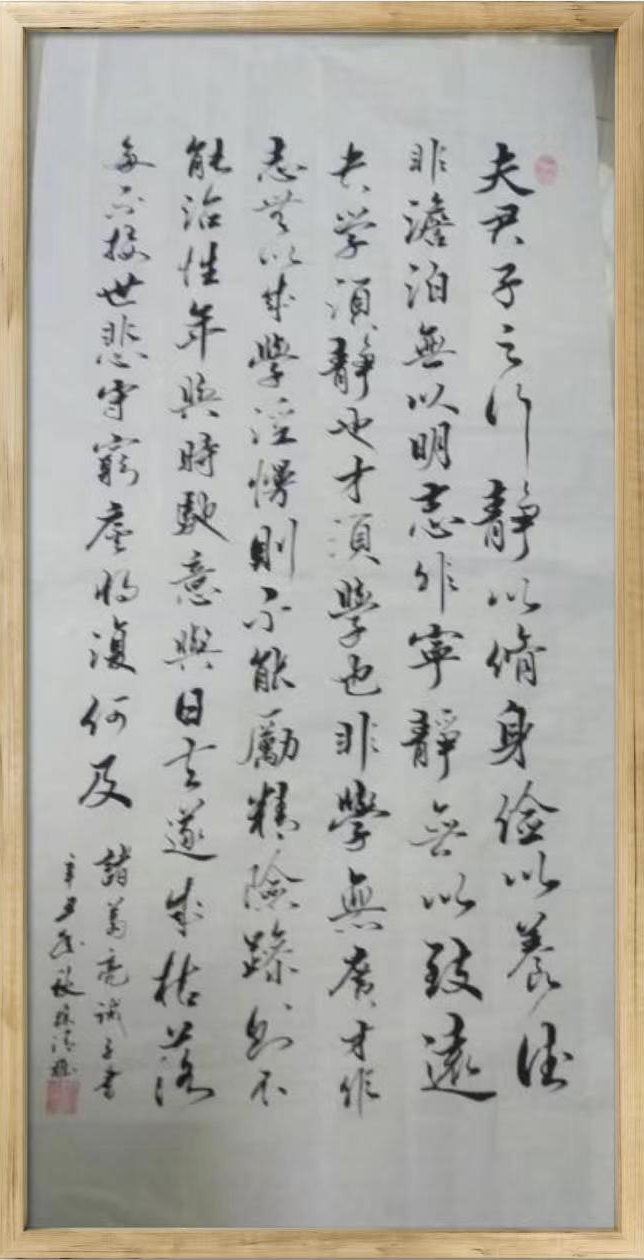 夫君子之行靜以脩身俭以養德
非澹泊無以明志非寧靜無以致遠
夫学須靜也才須學也非學無廣才非
志無以成學淫慢則不能勵精險躁則不
能治性年與時馳意與日去遂成枯落
多不接世悲守窮廬將復何及
諸葛亮誡子書
辛丑年秋